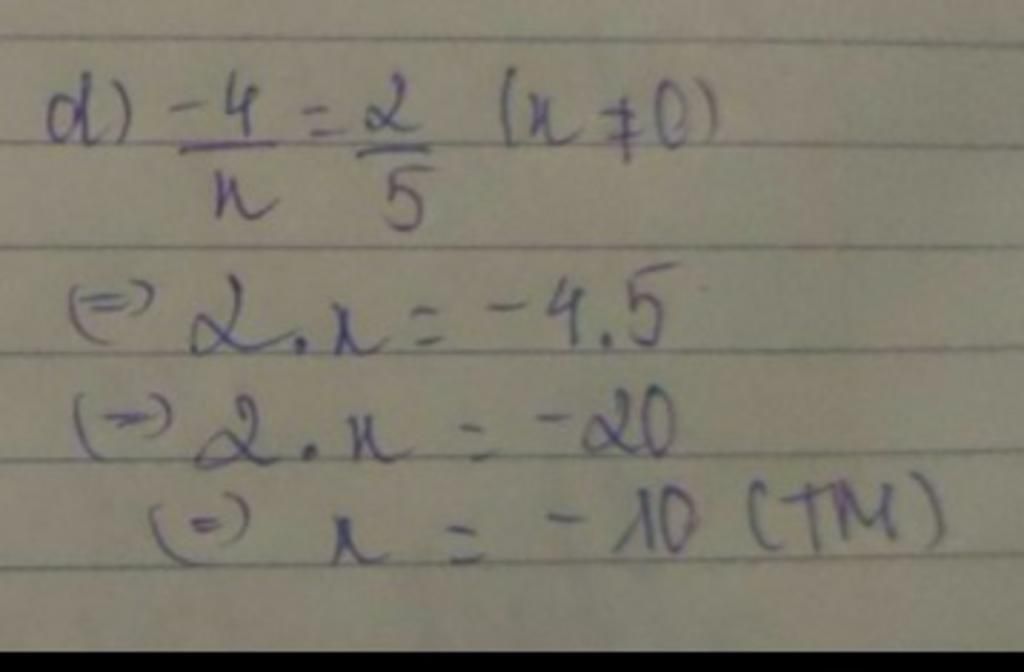 d) -4/x = 2/5 (x ≠ 0)
(=) 2.x = -4.5
(=) 2.x = -20
(=) x = -10 (TM)